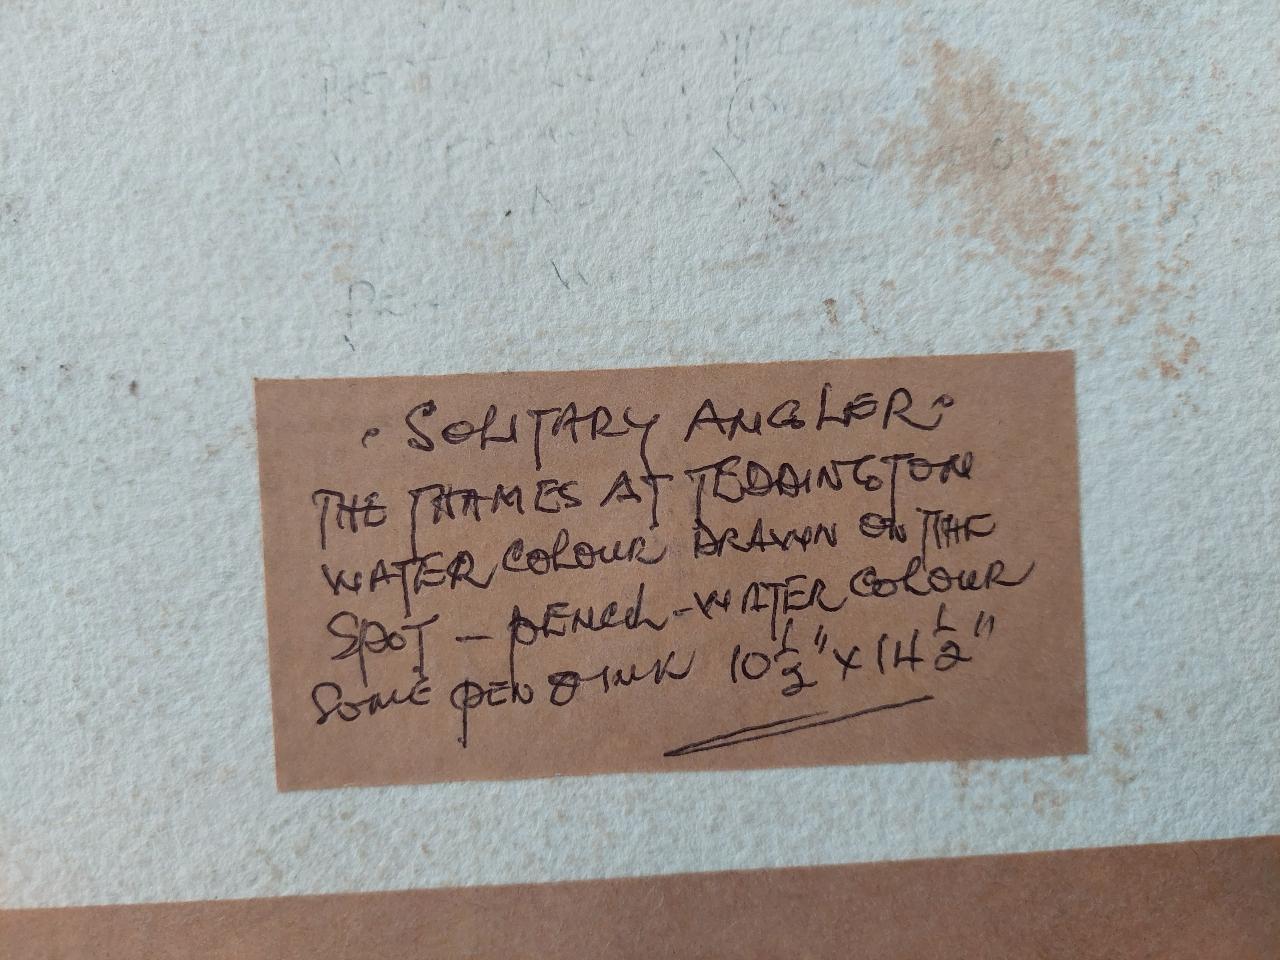 . SOLITARY ANGLER .
THE THAMES AT TEDDINGTON
WATER COLOUR DRAWN ON THE
SPOT - PENCIL - WATER COLOUR
SOME PEN & INK 10 1/2" X 14 1/2"